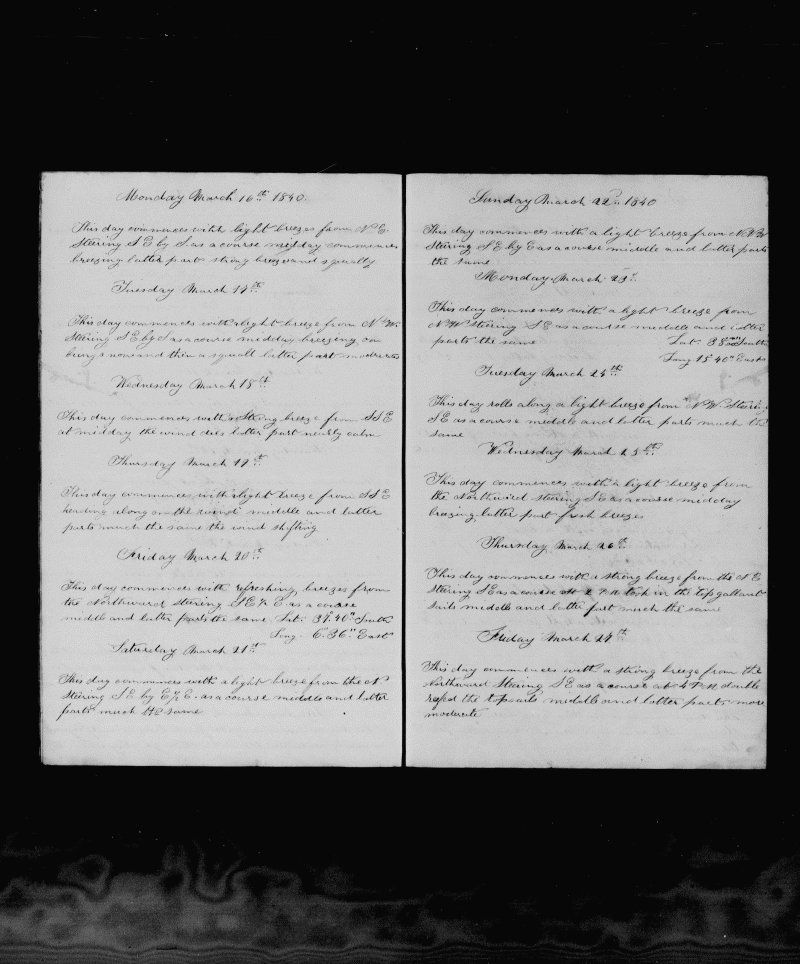 Monday March 16th 1840.
This day commences with light breezes from N.E.
Stering S E by S as a course midday commences
breezing latter part strong breeze and squally
Tuesday March 17th
This day commences with light breeze from N W.
Stering S E by S as a course midday breezing on
brings now and then a squall latter part moderates
Wednesday March 18th
This day commences with a Strong breeze from S S E
at midday the wind dies latter part nearly calm
Thursday March 19th
This day commences with light breeze from S S E
heading along on the wind middle and latter
parts much the same the wind shifting
Friday March 20th
This day commences with refreshing breezes from
the Northward stering S E ½ E as a course
middle and latter parts the same Lat. 37°.40" South
Long. 6.36" East
Saturday March 21st
This day commences with a light breeze from the N
Stering S E by E ½ E. as a course middle and latter
parts much the same
Sunday March 22nd 1840
This day commences with a light breeze from N N W
Stering S E by E as a course middle and latter parts
the same
Monday March 23d.
This day commences with a light breeze from
N W Stering S E as a course middle and latter
parts the same Lat 38 South
Long 15 40" East
Tuesday March 24th
This day rolls along a light breeze from N W. Stering
S E as a course middle and latter parts much the
same
Wednesday March 25th
This day commences with a light breeze from
the Northward stering S E as a course midday
breezing latter part fresh breezes
Thursday March 26th
This day commences with a strong breeze from the N E
Stering S E as a course at 2 P.M took in the top gallant
sails middle and latter part much the same
Friday March 27th
This day commences with a strong breeze from the
Northward Stering S E as a course at 4 P M, double
refed the topsails middle and latter parts more
moderate